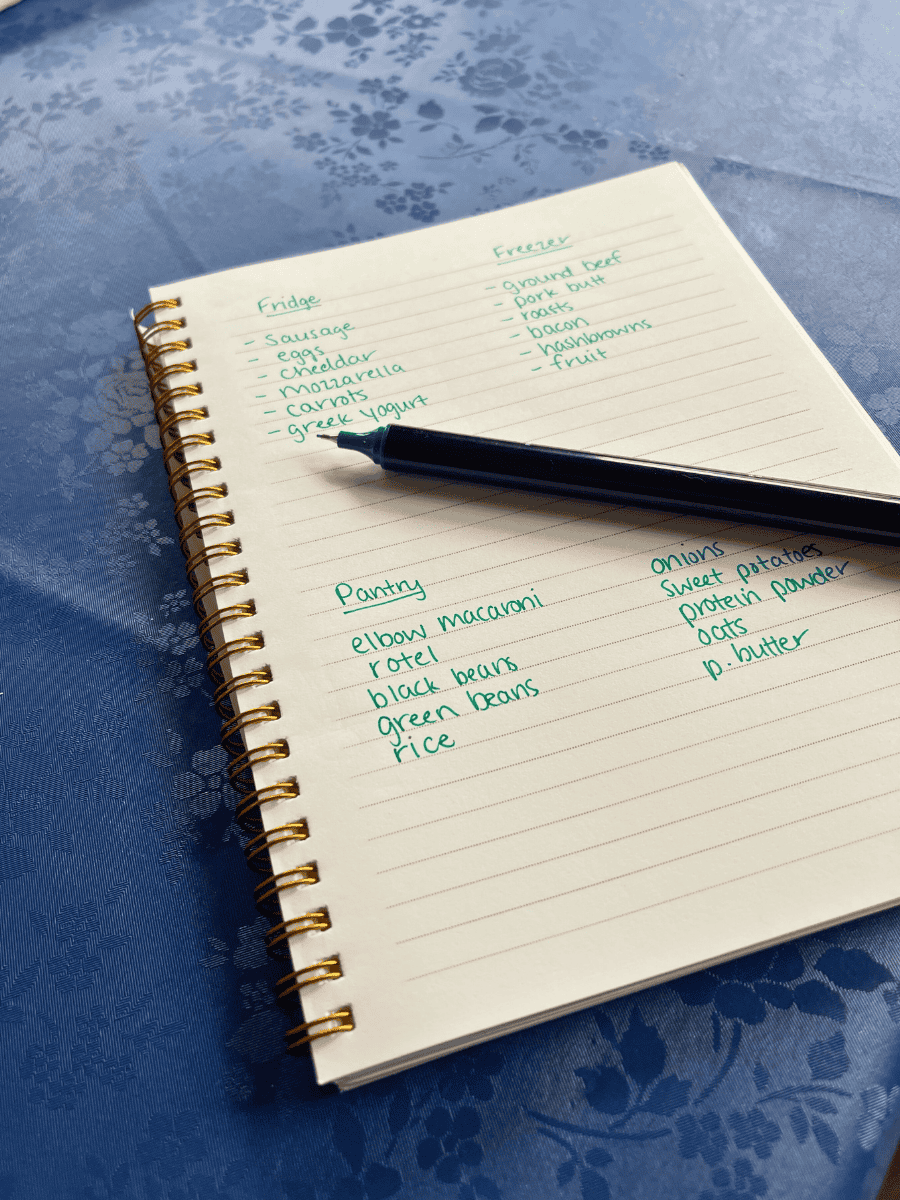 Fridge
- sausage
- eggs
- cheddar
- mozzarella
- carrots
- greek yogurt
Freezer
- ground beef
- pork butt
- roasts
- bacon
- hashbrowns
- fruit
Pantry
elbow macaroni
rotel
black beans
green beans
rice
onions
sweet potatoes
protein powder
oats
p. butter